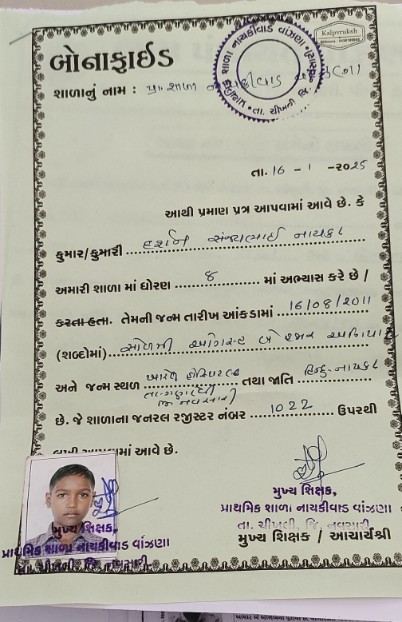 Kalpvruksh
બોનાફાઈડ
શાળાનું નામ : પ્રા. શાળા
તા. 16 - 1 - 2025
આથી પ્રમાણ પત્ર આપવામાં આવે છે. કે
કુમાર/કુમારી દર્શન સંજયભાઈ નાયકા
અમારી શાળા માં ધોરણ ૪ માં અભ્યાસ કરે છે /
કરતા હતા. તેમની જન્મ તારીખ આંકડામાં 16/08/2011
(શબ્દોમાં) સોળમી ઓગસ્ટ બે હજાર અગિયાર
અને જન્મ સ્થળ તથા જાતિ હિન્દુ-નાયકા
છે. જે શાળાના જનરલ રજીસ્ટર નંબર 1022 ઉપરથી
આવે છે.
મુખ્ય શિક્ષક,
પ્રાથમિક શાળા નાયકીવાડ વાંઝણા
તા. ચીખલી, જિ. નવસારી.
મુખ્ય શિક્ષક / આચાર્યશ્રી
મુખ્ય શિક્ષક,
પ્રાથમિક શાળા નાયકીવાડ વાંઝણા
તા. ચીખલી, જિ. નવસારી.